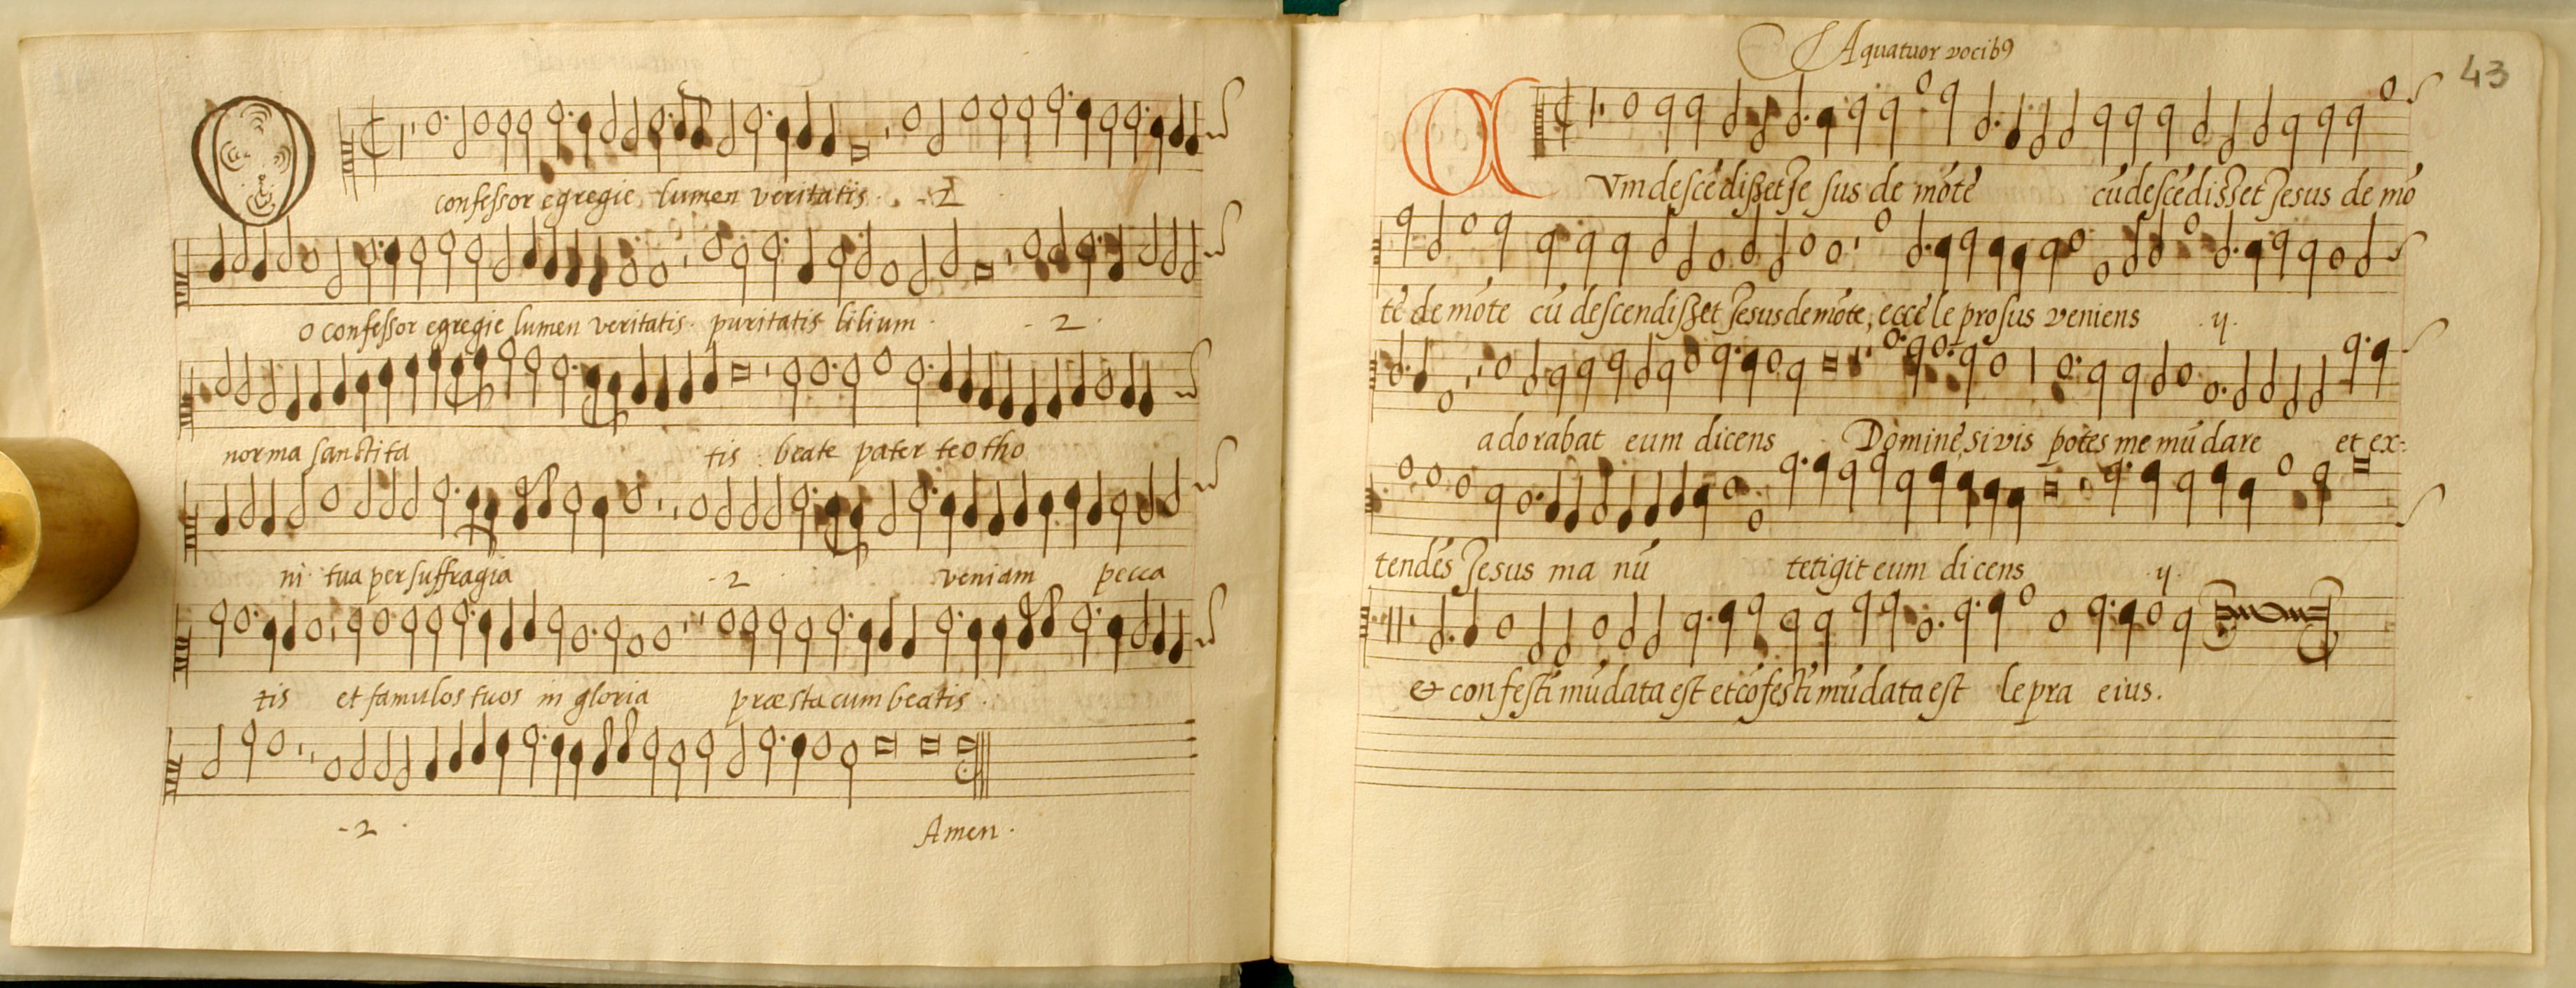 O confeſſor egregie lumen veritatis . -2 .
o confeſſor egregie lumen veritatis . puritatis lilium . - 2 .
norma ſanctita tis : beate pater teotho
ni tua per ſuffragia . 2 . veniam pecca
tis et famulos tuos in gloria præsta cum beatis .
- 2 . Amen .
A quatuor vocibꝰ
43
CVm deſcēdiſſet Je ſus de mōtē cū deſcēdiſſet Jesus de mō
tē de mōte cū deſcendiſſet Jesus de mōte, eccē le proſus veniens . ij .
adorabat eum dicens Dominē, si vis potes me mūdare et ex-
tendēs Jesus ma nū tetigit eum dicens ij .
& confeſtī mūdata eſt et cōfeſtī mūdata eſt lepra eius .